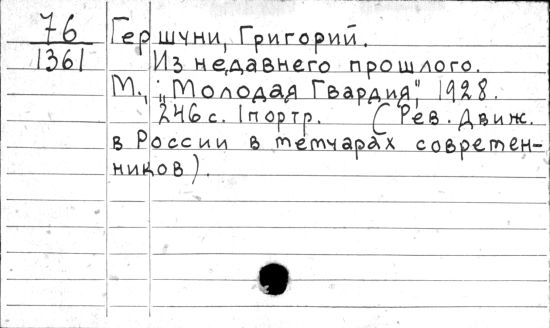 76 Гершуни, Григорий.
1361 Из недавнего прошлого.
М., "Молодая Гвардия", 1928.
246 с. 1 портр. (Рев. движ.
в России в мемуарах современ-
ников).